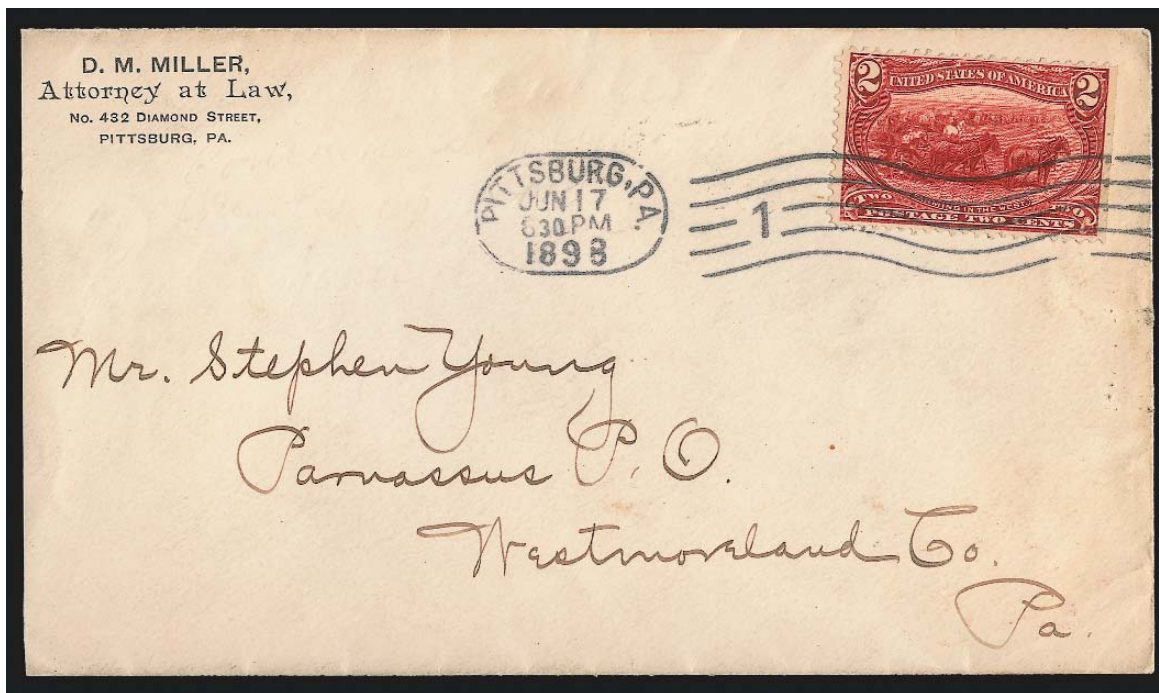 D. M. MILLER,
Attorney at Law,
No. 432 DIAMOND STREET,
PITTSBURG, PA.
PITTSBURG, PA.
JUN 17
30 PM
1898
1
2 UNITED STATES OF AMERICA 2
TWO IN THE WEST
POSTAGE TWO CENTS
Mr. Stephen Young
Parnassus P. O.
Westmoreland Co.
Pa.